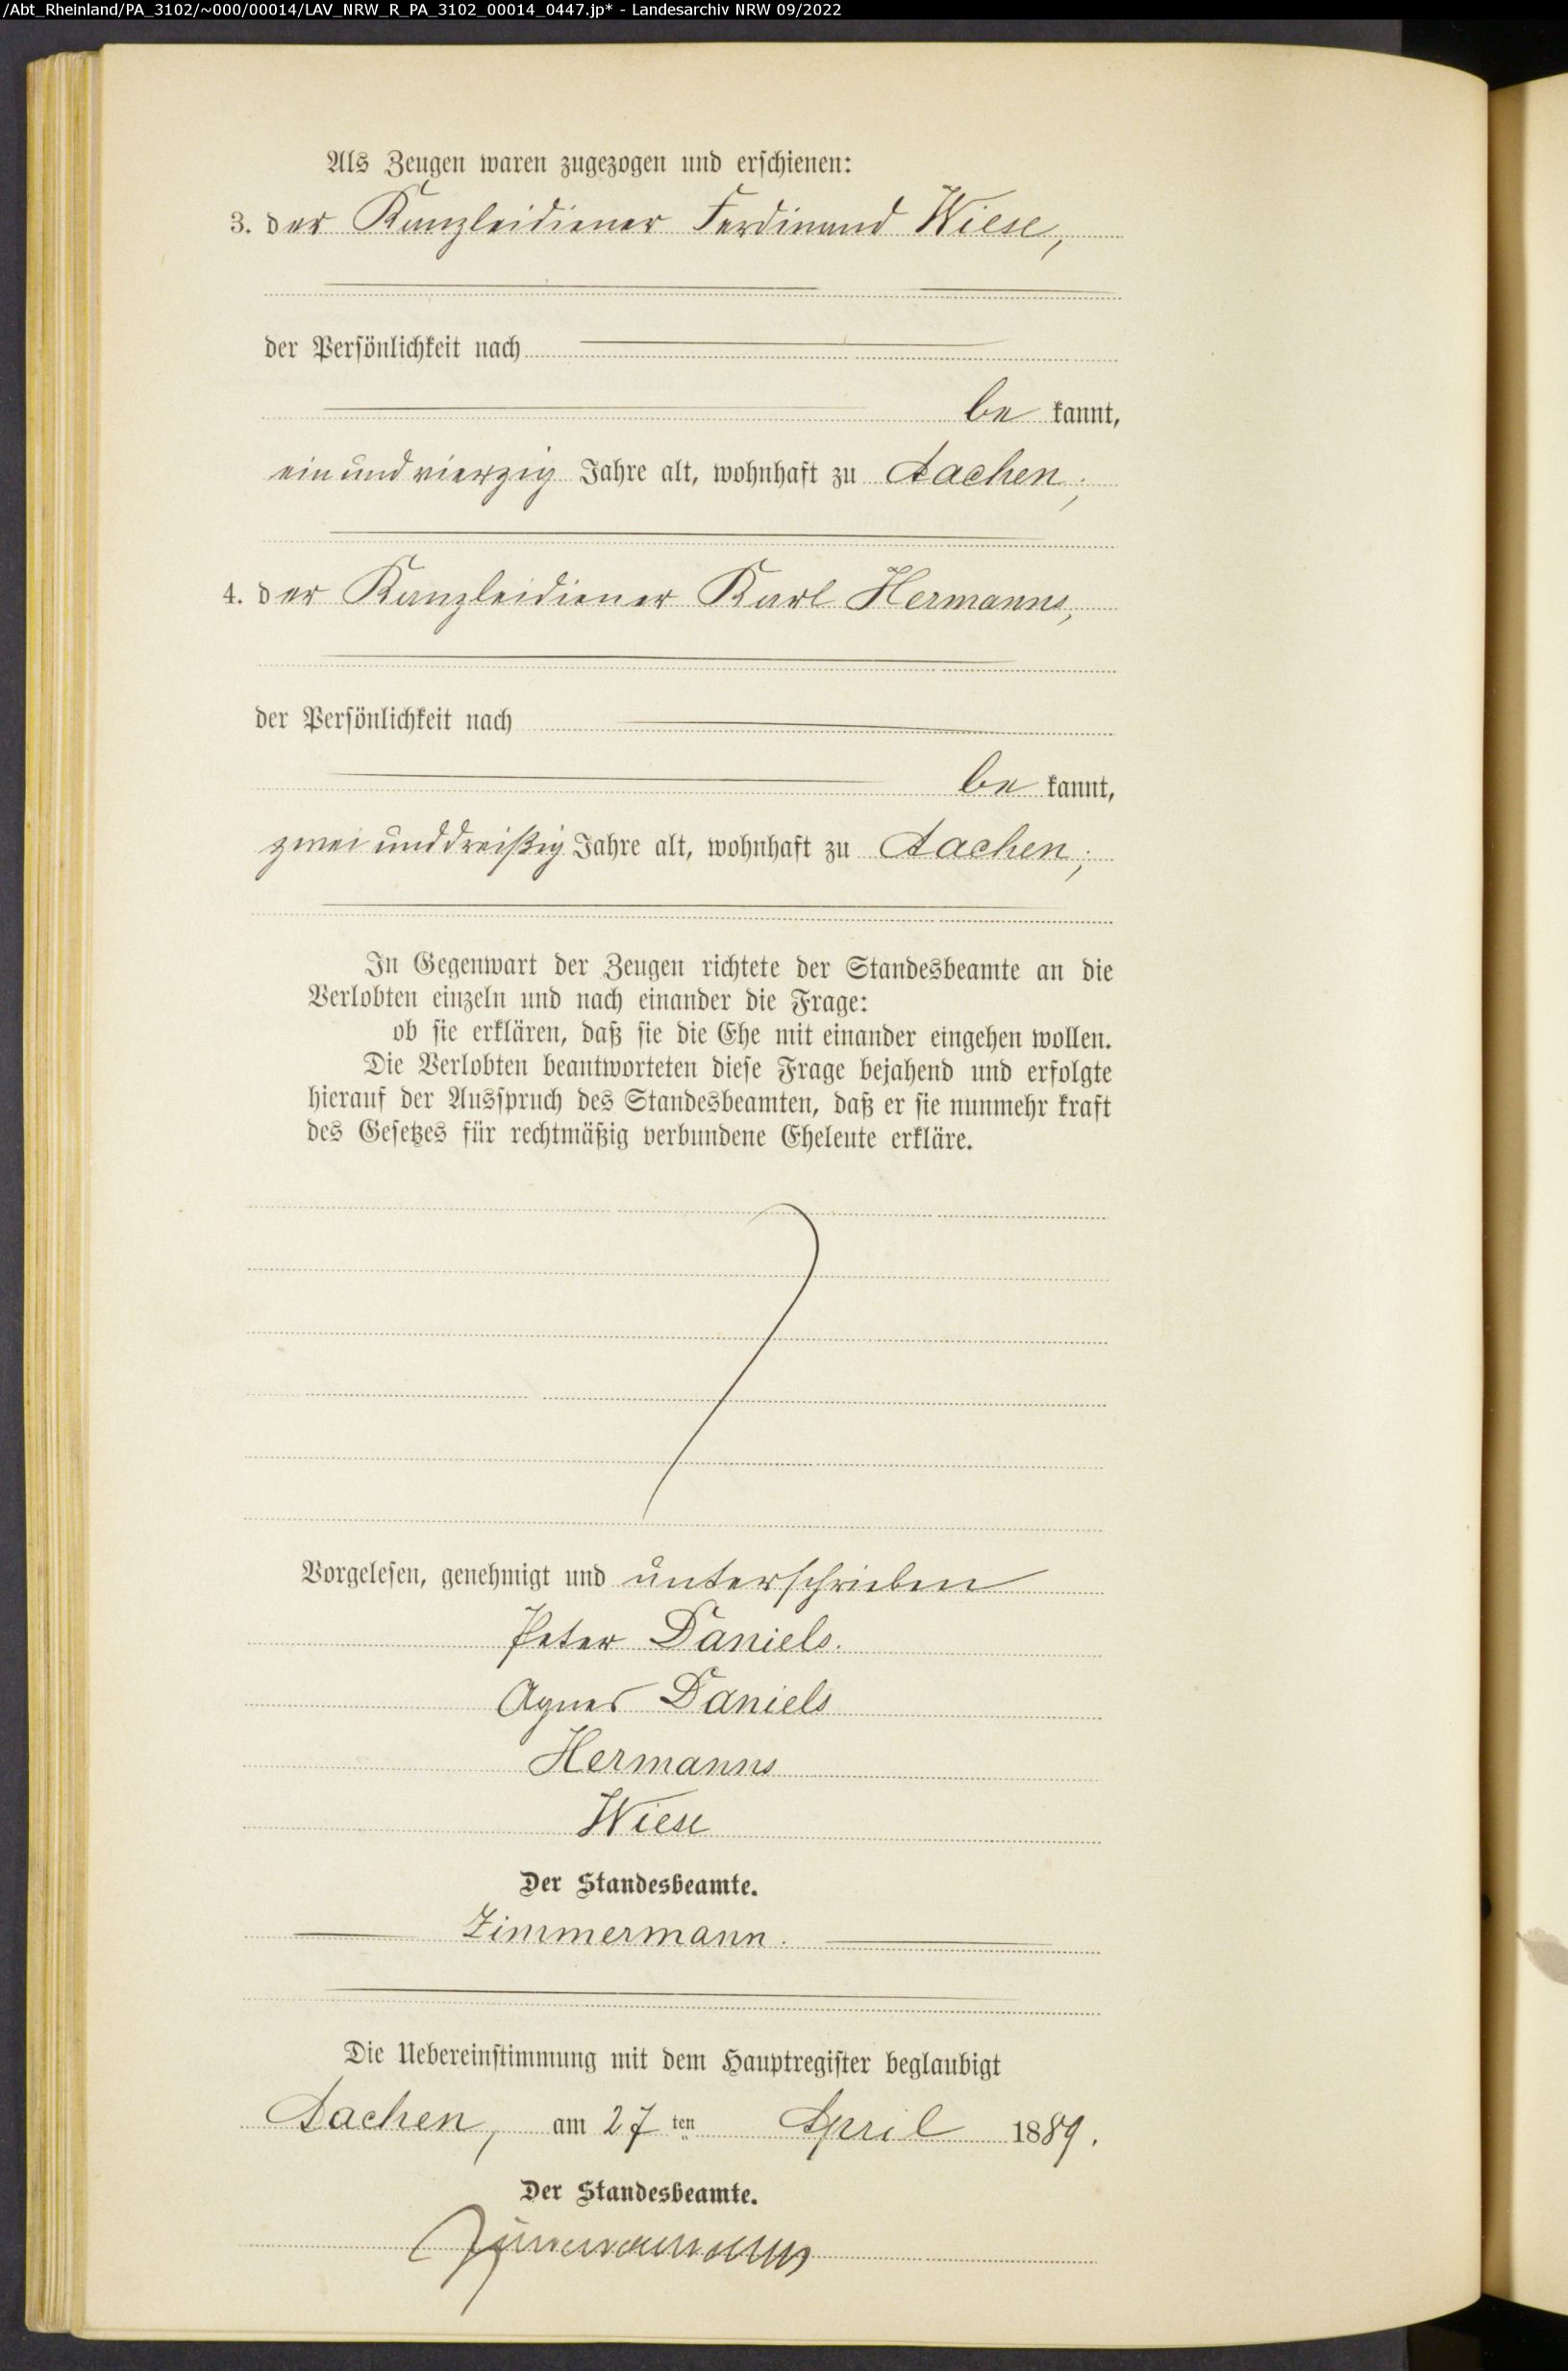 /Abt_Rheinland/PA_3102/~000/00014/LAV_NRW_R_PA_3102_00014_0447.jp* - Landesarchiv NRW 09/2022
Als Zeugen waren zugezogen und erschienen:
3. der Kanzleidiener Ferdinand Wiese,
der Persönlichkeit nach
be kannt,
ein und vierzig Jahre alt, wohnhaft zu Aachen;
4. der Kanzleidiener Karl Hermanns,
der Persönlichkeit nach
be kannt,
zwei und dreißig Jahre alt, wohnhaft zu Aachen;
In Gegenwart der Zeugen richtete der Standesbeamte an die
Verlobten einzeln und nach einander die Frage:
ob sie erklären, daß sie die Ehe mit einander eingehen wollen.
Die Verlobten beantworteten diese Frage bejahend und erfolgte
hierauf der Ausspruch des Standesbeamten, daß er sie nunmehr kraft
des Gesetzes für rechtmäßig verbundene Eheleute erkläre.
Vorgelesen, genehmigt und unterschrieben
Peter Daniels.
Agnes Daniels
Hermanns
Wiese
Der Standesbeamte.
Zimmermann.
Die Uebereinstimmung mit dem Hauptregister beglaubigt
Aachen, am 27 ten April 1889.
Der Standesbeamte.
Zimmermann